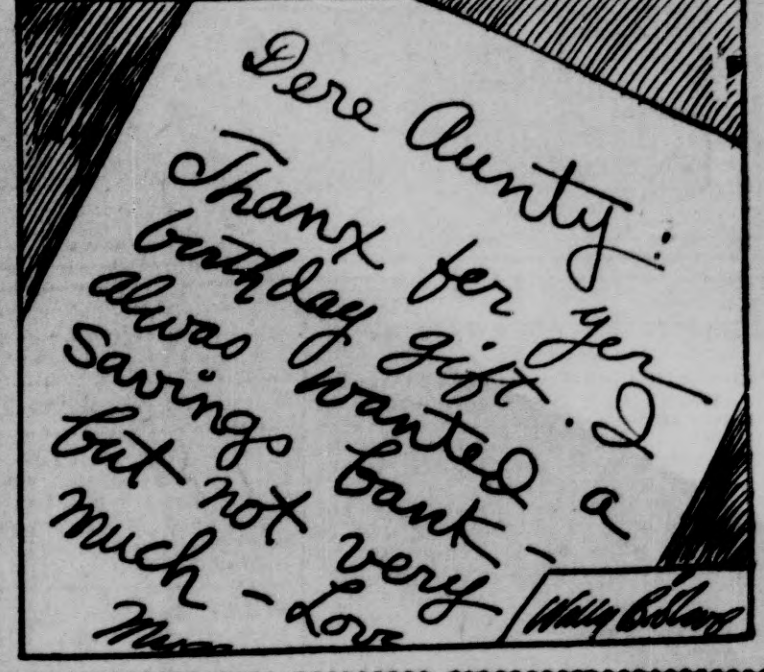 Dere Aunty:
Thanx fer yer
birthday gift. I
alwas wanted a
savings bank-
but not very
much - Love
Wally Bishop